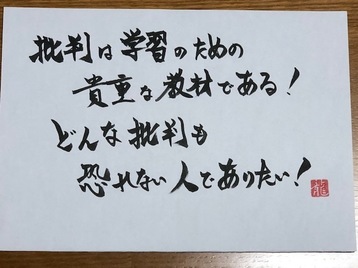 批判は学習のための
貴重な教材である!
どんな批判も
恐れない人でありたい!
龍